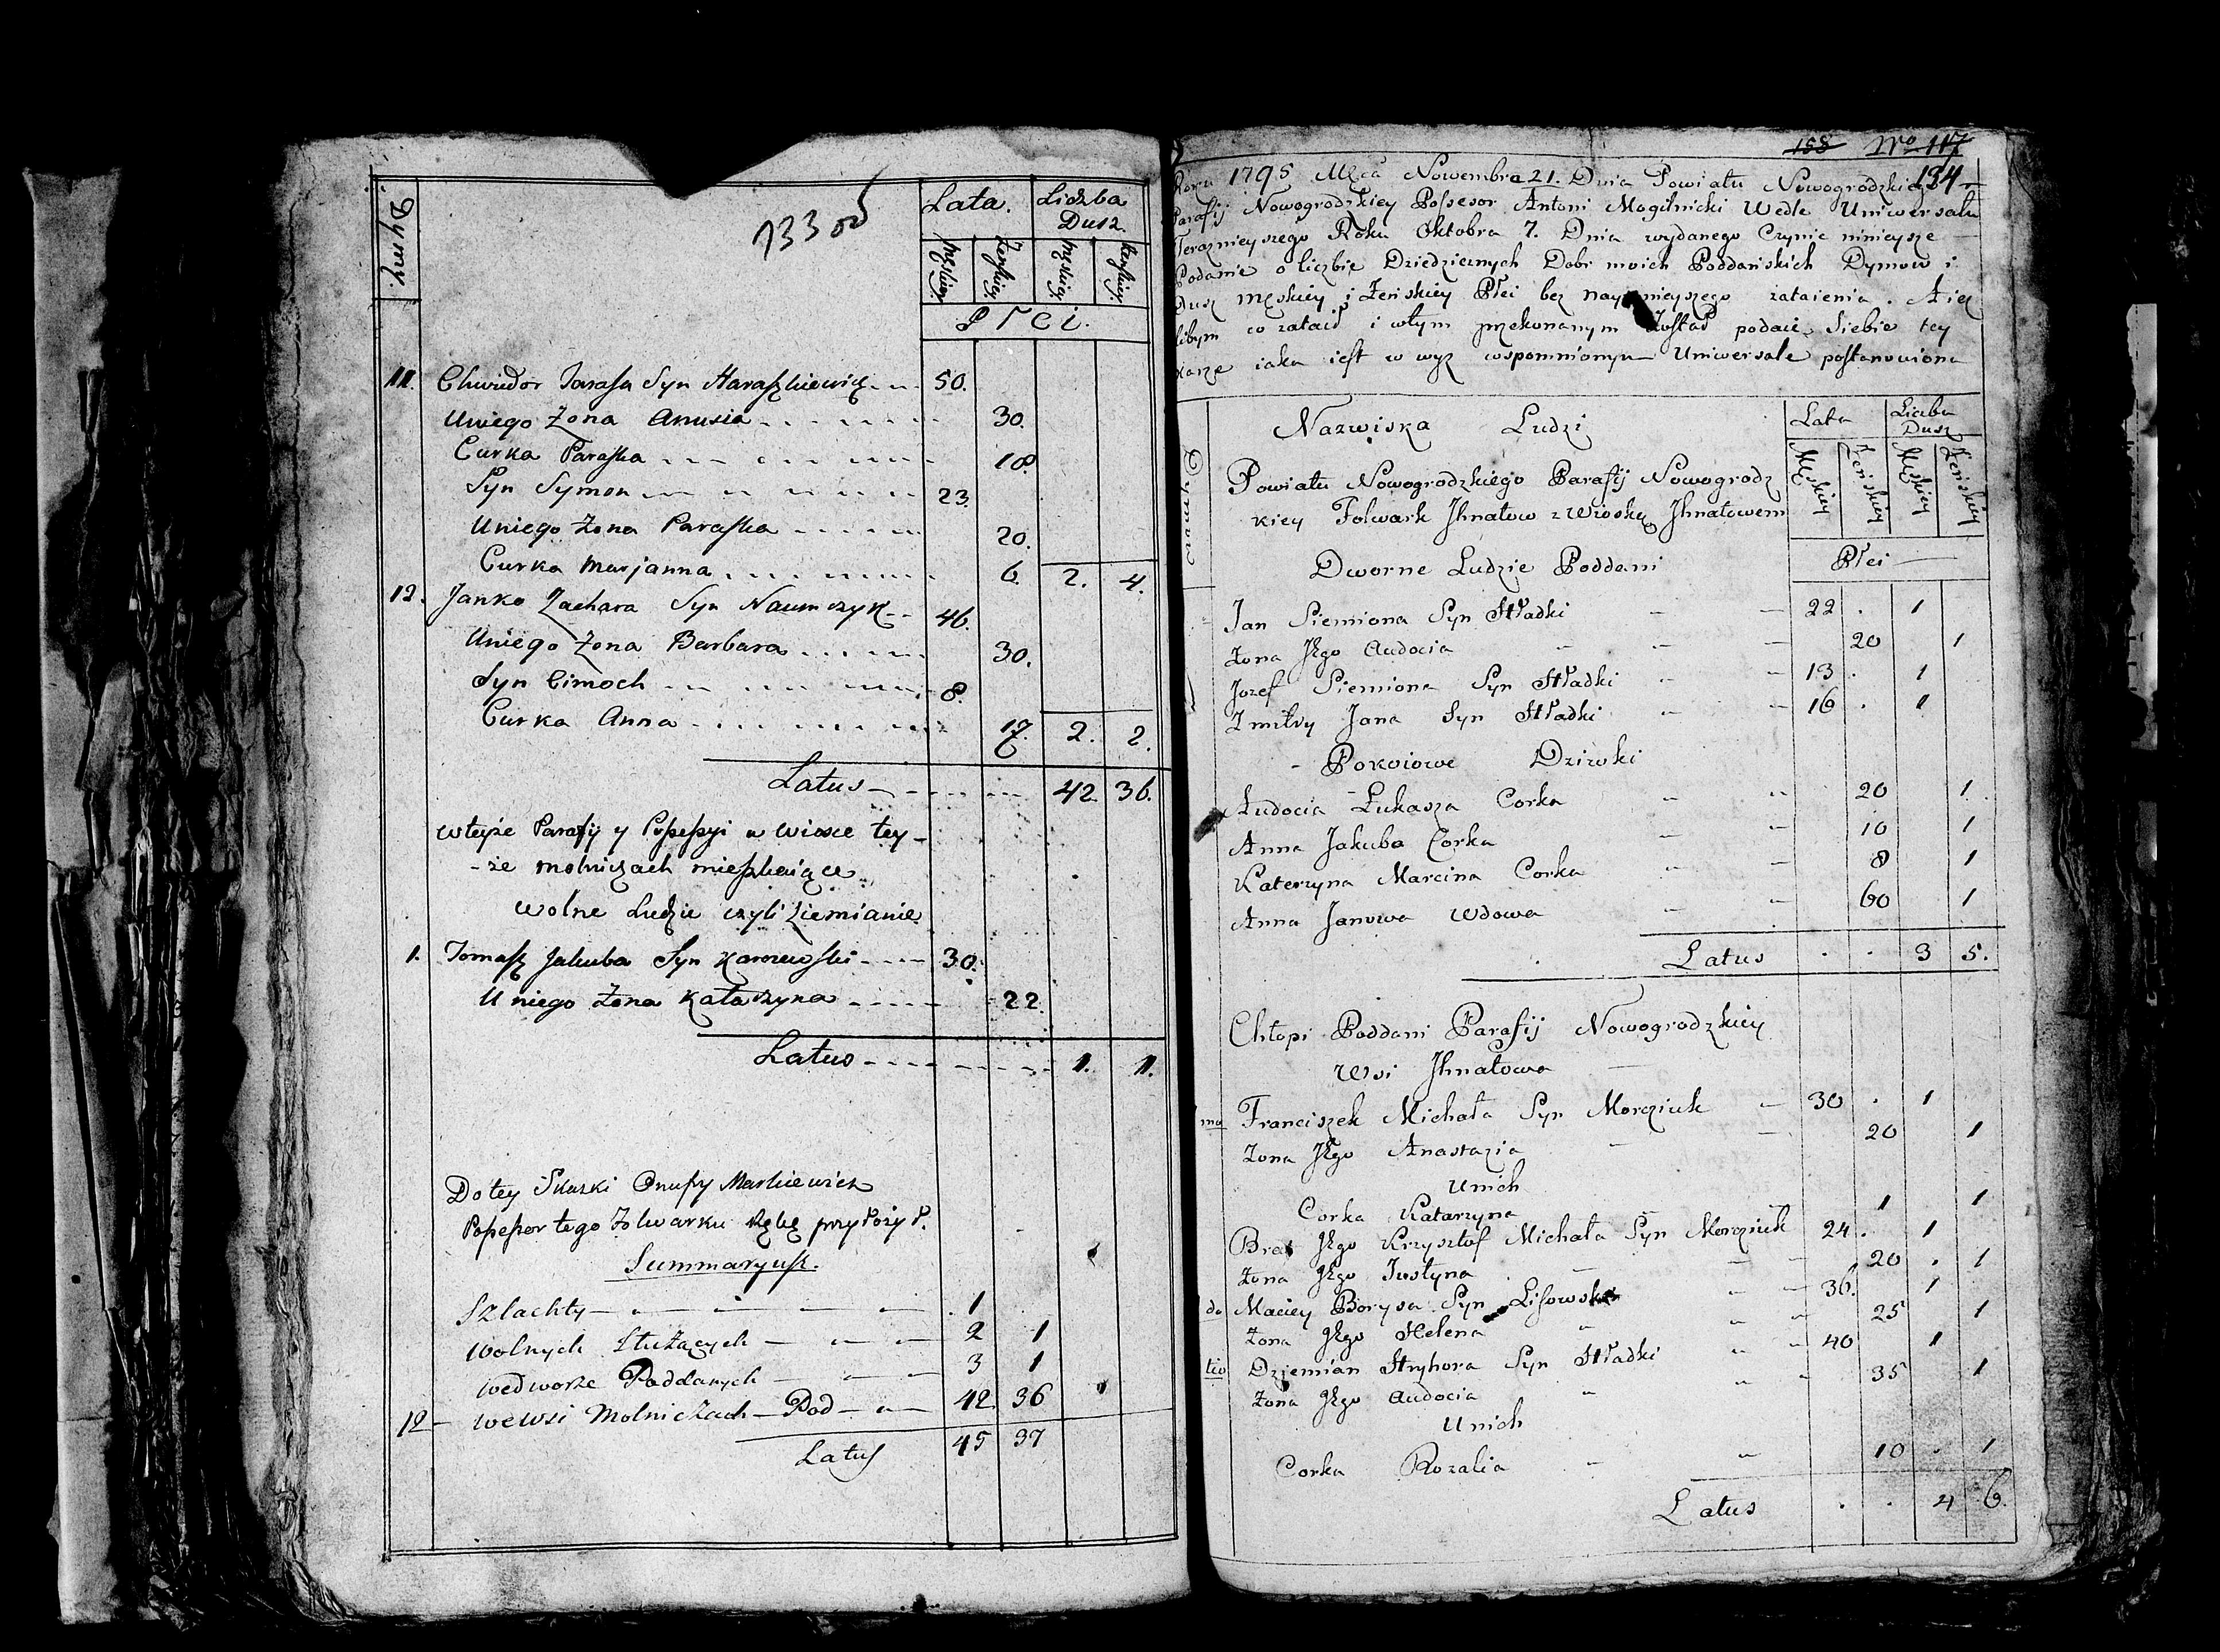 133 об
Dymy.
Lata. Liczba
Dusz.
Męskiey. Żenskiey. Męskiey. Żenskiey.
Płci.
11. Chwiedor Tarasa Syn Haraszkiewicz 50.
Uniego Żona Anusia 30.
Curka Paraska 18.
Syn Symon 23.
Uniego Żona Paraska 20.
Curka Marjanna 6. 2. 4.
12. Janko Zachara Syn Naumczyk 46.
Uniego Żona Barbara 30.
Syn Cimoch 8.
Curka Anna 17. 2. 2.
Latus 42. 36.
wteyże Parafij y Possessyi w Wiosce tey-
-że Molniczach mieszkaiące
wolne Ludzie czyli Ziemianie
1. Tomasz Jakuba Syn 30.
Uniego Żona Katarzyna 22.
Latus 1. 1.
Do tey Skaski Onufry Markiewicz
Possessor tego Folwarku Rękę przyłożył.
Summaryusz.
Szlachty 1
Wolnych Służących 2 1
wedworze Poddanych 3 1
12 wewsi Molniczach Pod 42 36
Latus 45 37
158 Nro 117
134.
Roku 1795 Mca Nowembra 21. Dnia Powiatu Nowogrodzkiego
Parafij Nowogrodzkiey Possesor Antoni Mogilnicki Wedle Uniwersału
Teraznieyszego Roku Oktobra 7. Dnia wydanego Czynie ninieysze
Podanie o liczbie Dziedzicznych Dobr moich Poddańskich Dymow i
Dusz męskiey i Żeńskiey Płci bez naymnieyszego zataienia. A ież
libym co zataił i wtym przekonanym został podaię Siebie tey
karze iaka iest w wyż wspomnionym Uniwersale postanowiona
Nazwiska Ludzi
Lata Liczba
Dusz
Męskiey Żeńskiey Męskiey Żeńskiey
Płci
Powiatu Nowogrodzkiego Parafij Nowogrodz
kiey Folwark Jhnatow z Wioską Jhnatowem
Dworne Ludzie Poddani
Jan Siemiona Syn Hładki 22 . 1
Żona Jego Audocia 20 1
Jozef Siemiona Syn Hładki 13 . 1
Zmitry Jana Syn Hładki 16 . 1
Pokoiowe Dziwki
Audocia Łukasza Corka 20 1
Anna Jakuba Corka 10 1
Katerzyna Marcina Corka 8 1
Anna Janowa Wdowa 60 1
Latus . . 3 5.
Chłopi Poddani Parafij Nowogrodzkiey
Wsi Jhnatowa
1mo Franciszek Michała Syn Moroziuk 30 . 1
Żona Jego Anastazia 20 1
Unich
Corka Katarzyna 1 1
Brat Jego Krzysztof Michała Syn Moroziuk 24 . 1
Żona Jego Justyna 20 . 1
do Maciey Borysa Syn Lisowski 36. 1
Żona Jego Helena 25 1
tio Dziemian Hryhora Syn Hładki 40 1
Żona Jego Audocia 35 1
Unich
Corka Rozalia 10 . 1
Latus . . 4 6.